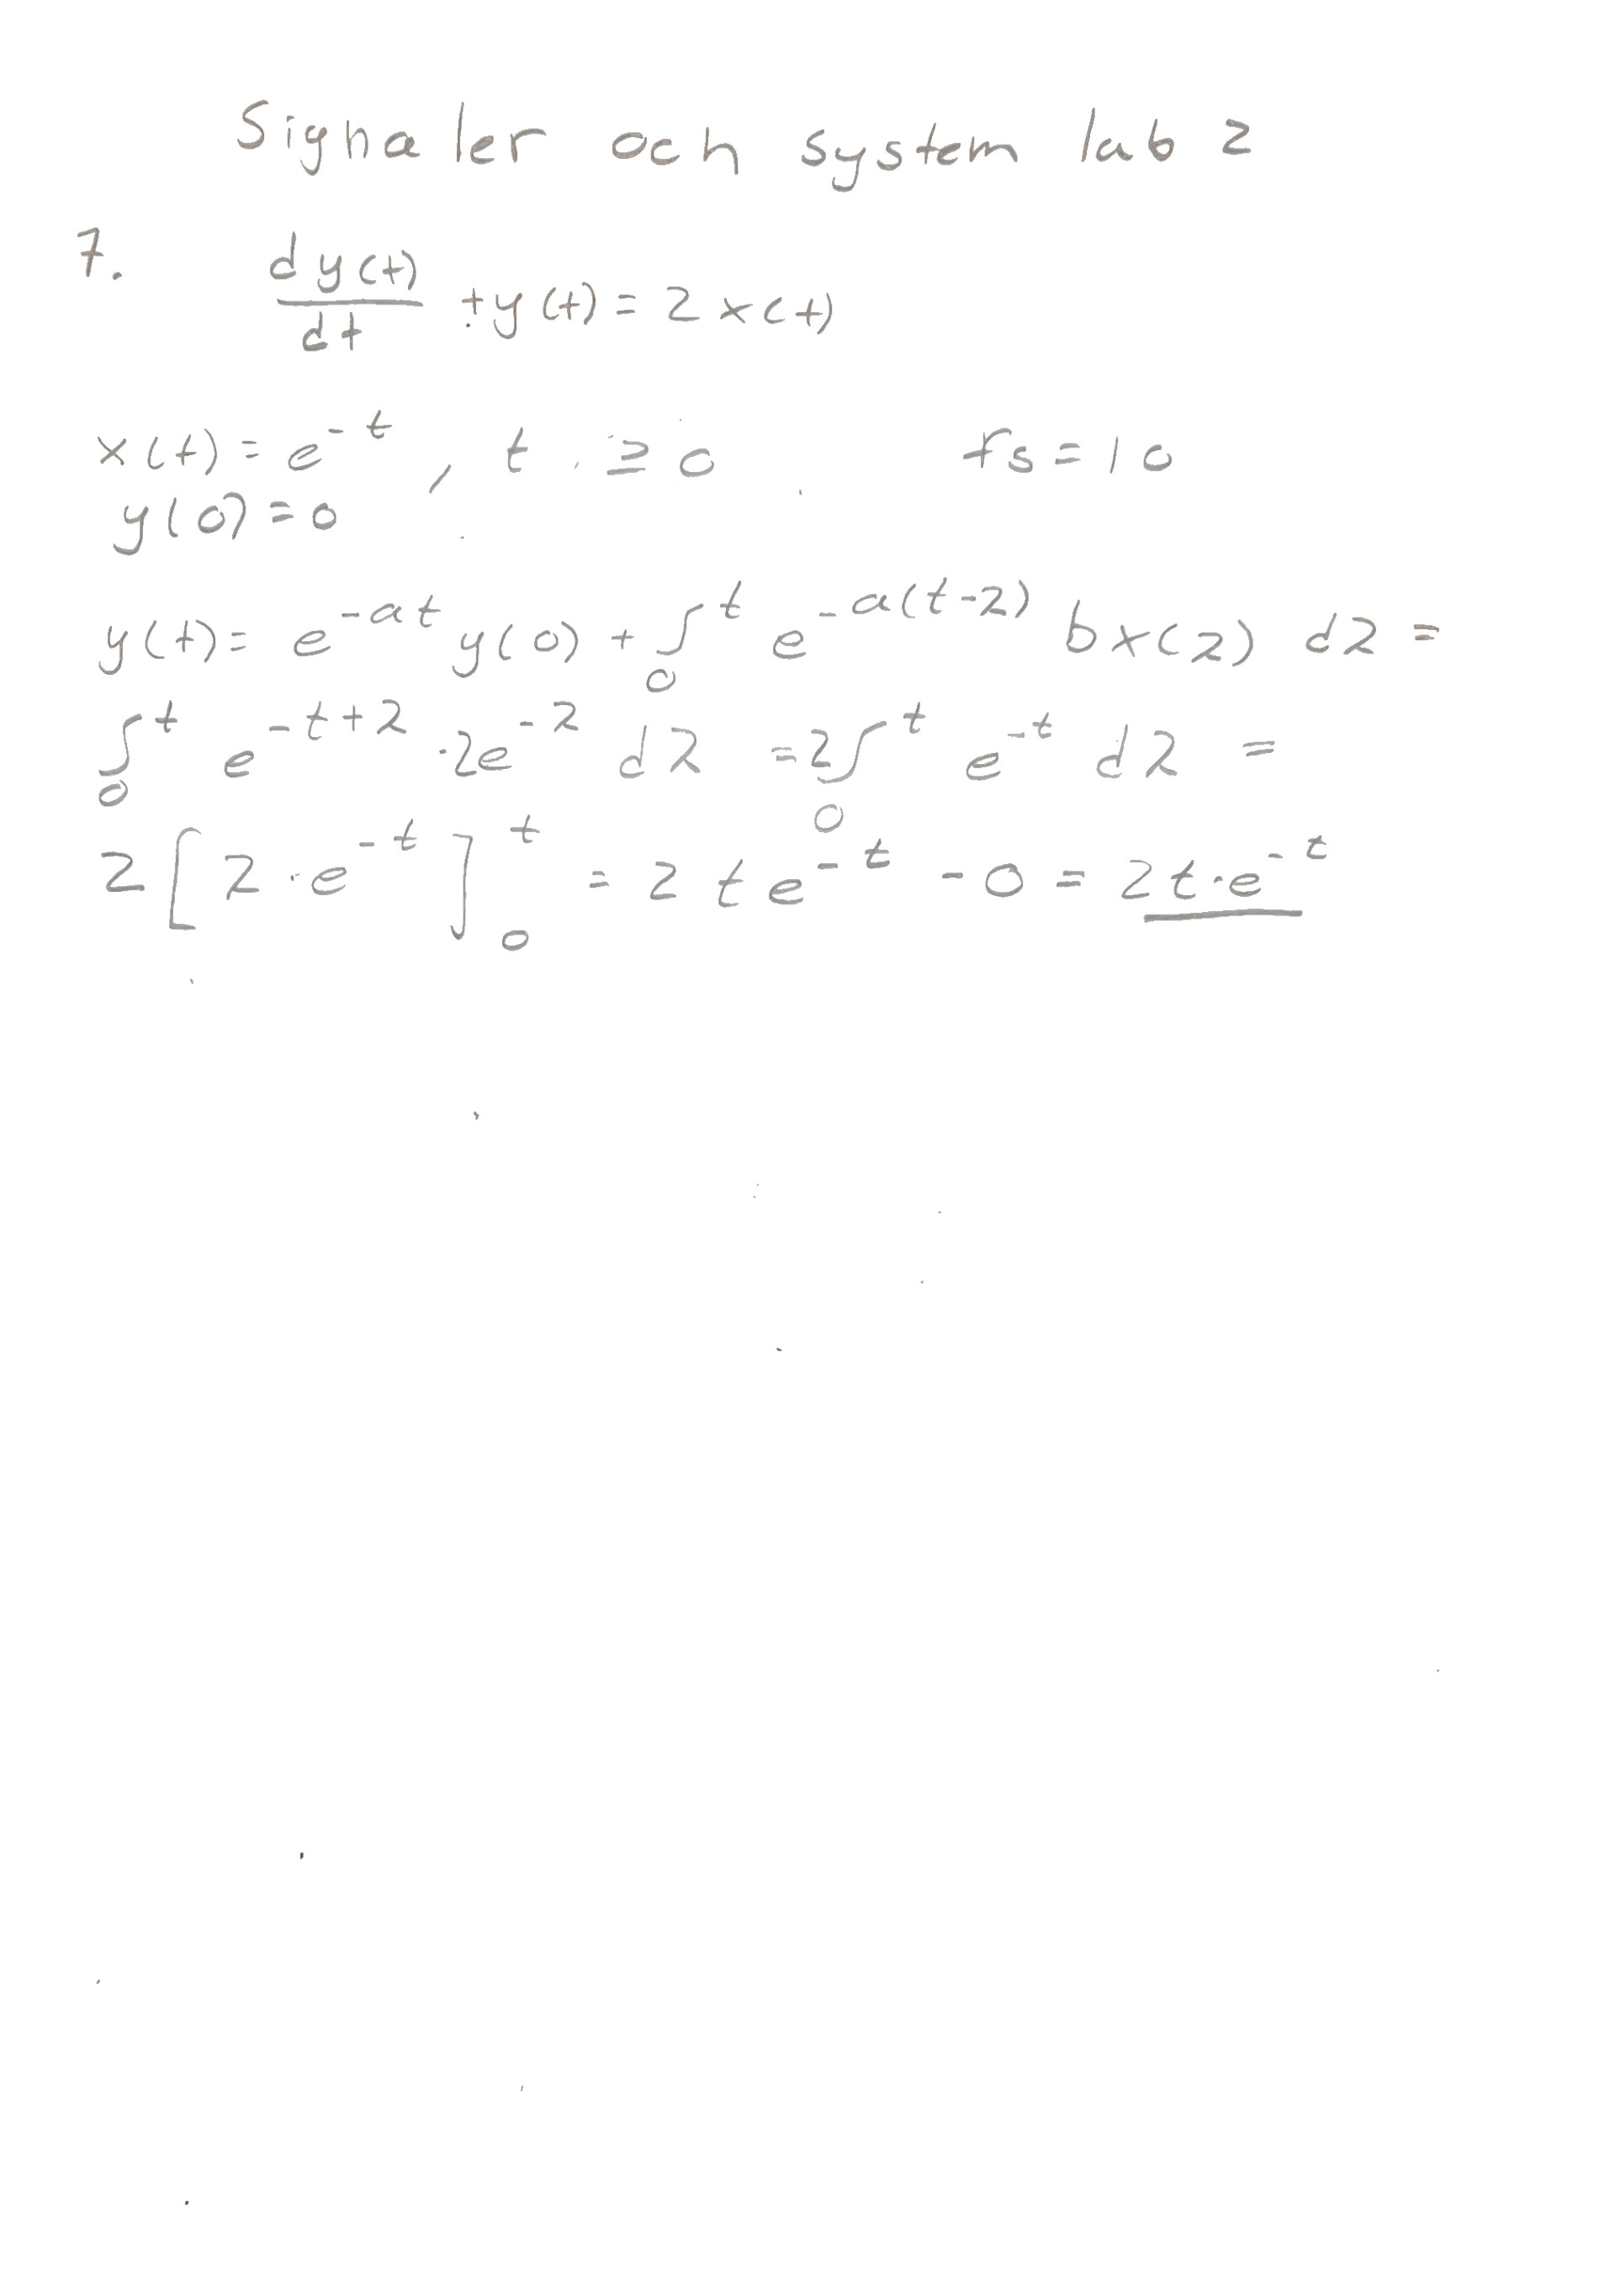 Signaler och system lab 2
7. dy(t)/dt + y(t) = 2x(t)
x(t) = e^-t, t ≥ 0 fs = 10
y(0) = 0
y(t) = e^-at y(0) + ∫_0^t e^-a(t-λ) bx(λ) dλ =
∫_0^t e^-t+λ · 2e^-λ dλ = 2∫_0^t e^-t dλ =
2[λ · e^-t]_0^t = 2te^-t - 0 = 2t·e^-t